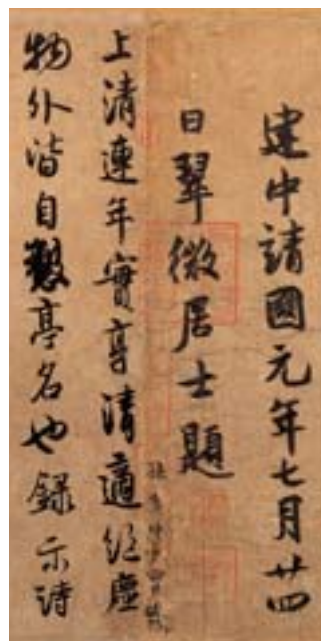 建中靖國元年七月廿四
日翠微居士題
上清連年實享清適絕塵
物外皆自製亭名也錄示詩